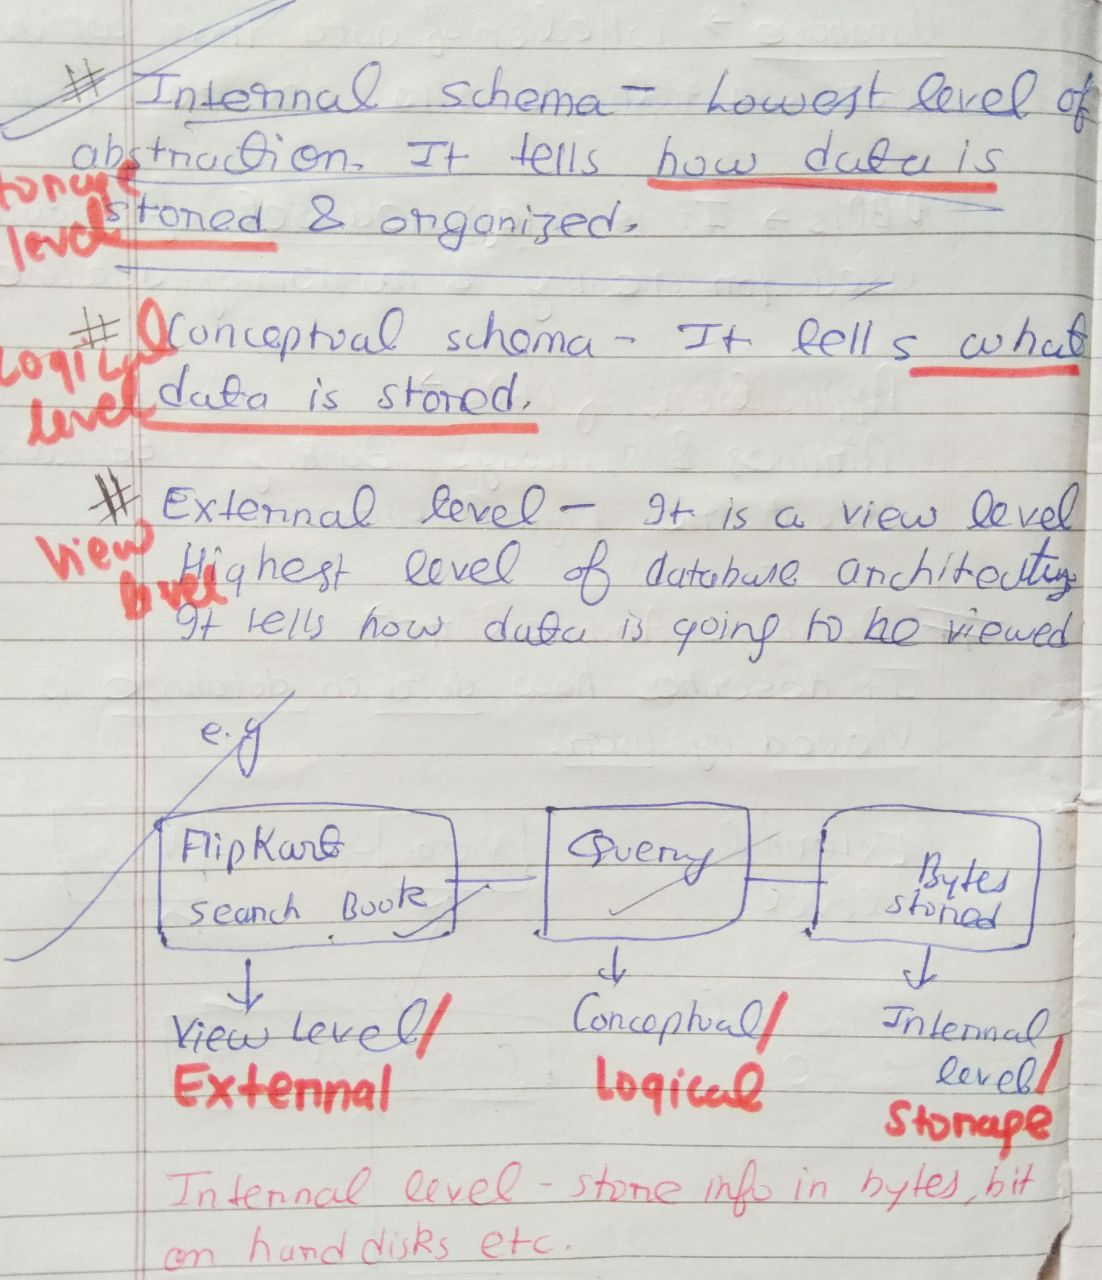 # Internal schema - Lowest level of
abstraction. It tells how data is
storage
level
stored & organized.
# Conceptual schema - It tells what
Logical
level
data is stored.
# External level - It is a view level
View
level
Highest level of database architecture
It tells how data is going to be viewed
e.g
Flipkart
search Book
Query
Bytes
stored
View Level/
External
Conceptual/
Logical
Internal
level/
Storage
Internal level - store info in bytes, bit
on hard disks etc.